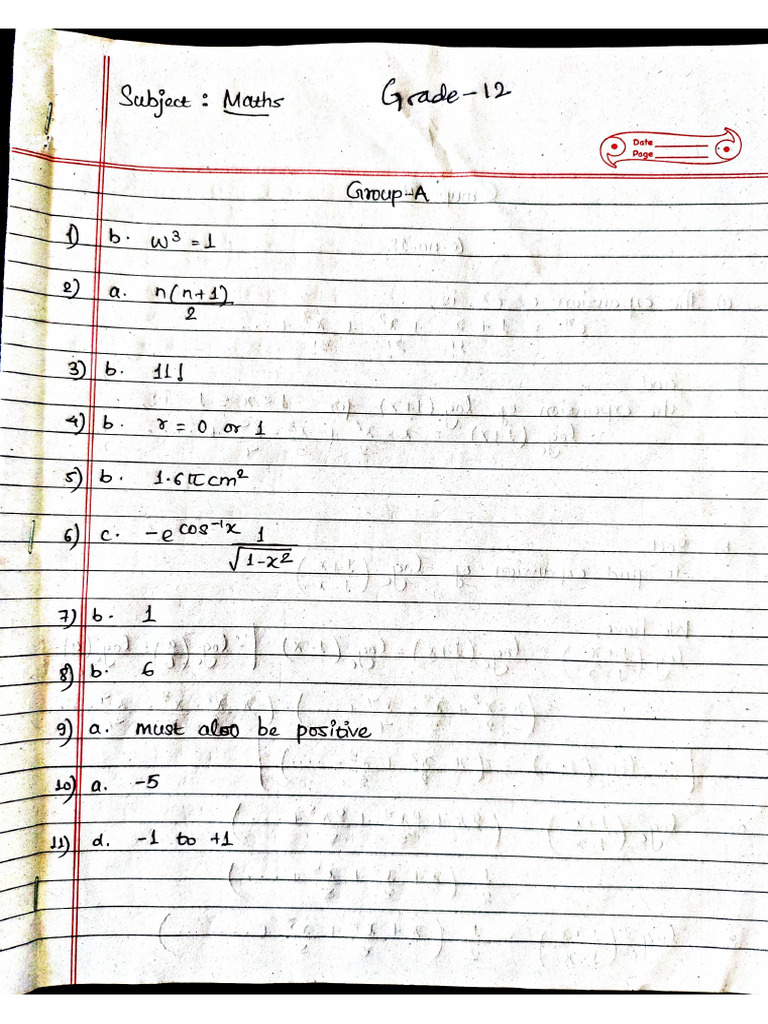 Subject : Maths Grade-12
Date
Page
Group-A
1) b. w³ = 1
2) a. n(n+1)
2
3) b. 11!
4) b. r = 0 or 1
5) b. 1.6π cm²
6) c. -e^cos⁻¹x 1
√1-x²
7) b. 1
8) b. 6
9) a. must also be positive
10) a. -5
11) d. -1 to +1